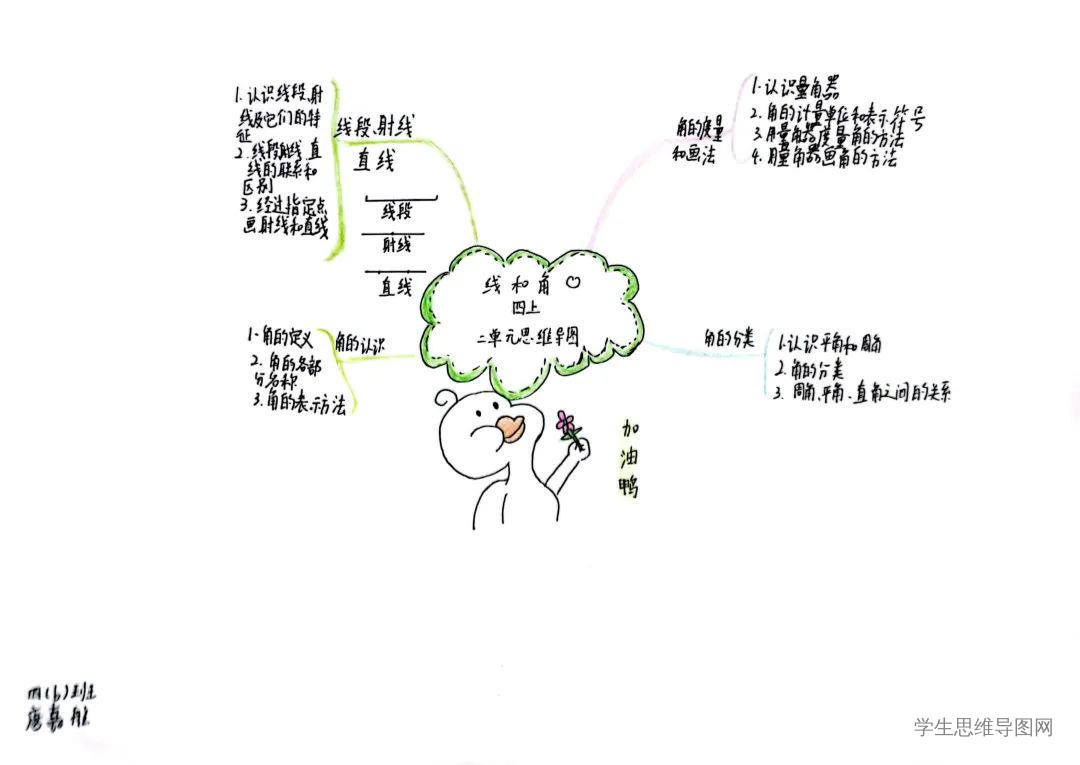 线和角
四上
二单元思维导图
线段、射线
直线
1.认识线段、射
线及它们的特
征
2.线段、射线、直
线的联系和
区别
3.经过指定点
画射线和直线
线段
射线
直线
角的度量
和画法
1.认识量角器
2.角的计量单位和表示符号
3.用量角器度量角的方法
4.用量角器画角的方法
角的认识
1.角的定义
2.角的各部
分名称
3.角的表示方法
角的分类
1.认识平角和周角
2.角的分类
3.周角、平角、直角之间的关系
加
油
鸭
四(6)班
唐嘉
学生思维导图网